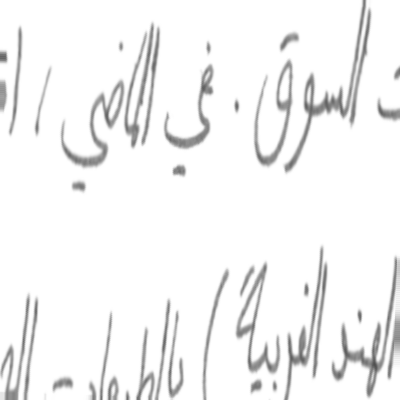 السوق . في الماضي ،
الهند الغربية ) بالطبعات